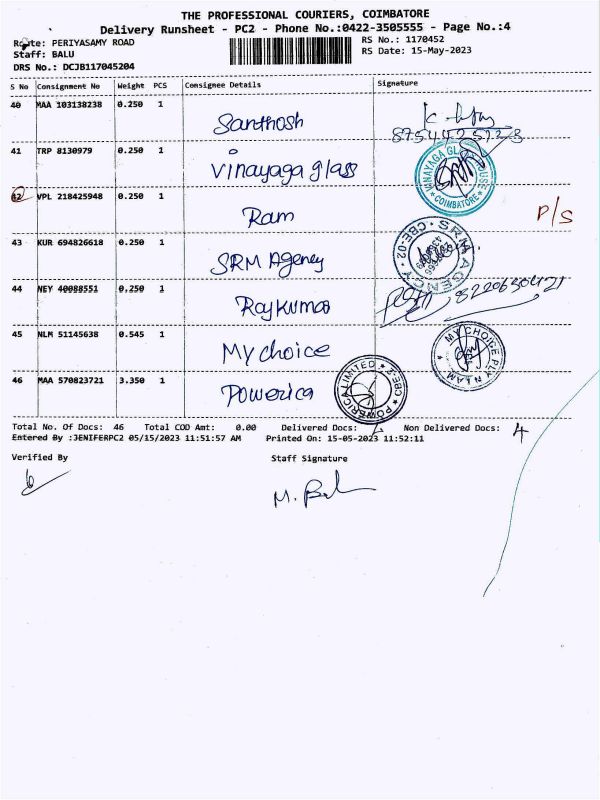 THE PROFESSIONAL COURIERS, COIMBATORE
Delivery Runsheet - PC2 - Phone No.:0422-3505555 - Page No.:4
Route: PERIYASAMY ROAD
Staff: BALU
DRS No.: DCJB117045204
RS No.: 1170452
RS Date: 15-May-2023
S No Consignment No Weight PCS Consignee Details Signature
40 MAA 103138238 0.250 1 Santhosh
41 TRP 8130979 0.250 1 Vinayaga glass
VINAYAGA GLASS HOUSE * COIMBATORE *
42 VPL 218425948 0.250 1 Ram P/S
43 KUR 694826618 0.250 1 SRM Agency
SRM AGENCY * CBE-02 *
44 NEY 40088551 0.250 1 Rajkumar 8220630421
45 NLM 51145638 0.545 1 My choice
MY CHOICE PLY N LAM
46 MAA 570823721 3.350 1 Powerica
POWERICA LIMITED * CBE-2 *
Total No. Of Docs: 46 Total COD Amt: 0.00 Delivered Docs: Non Delivered Docs: 4
Entered By :JENIFERPC2 05/15/2023 11:51:57 AM Printed On: 15-05-2023 11:52:11
Verified By Staff Signature